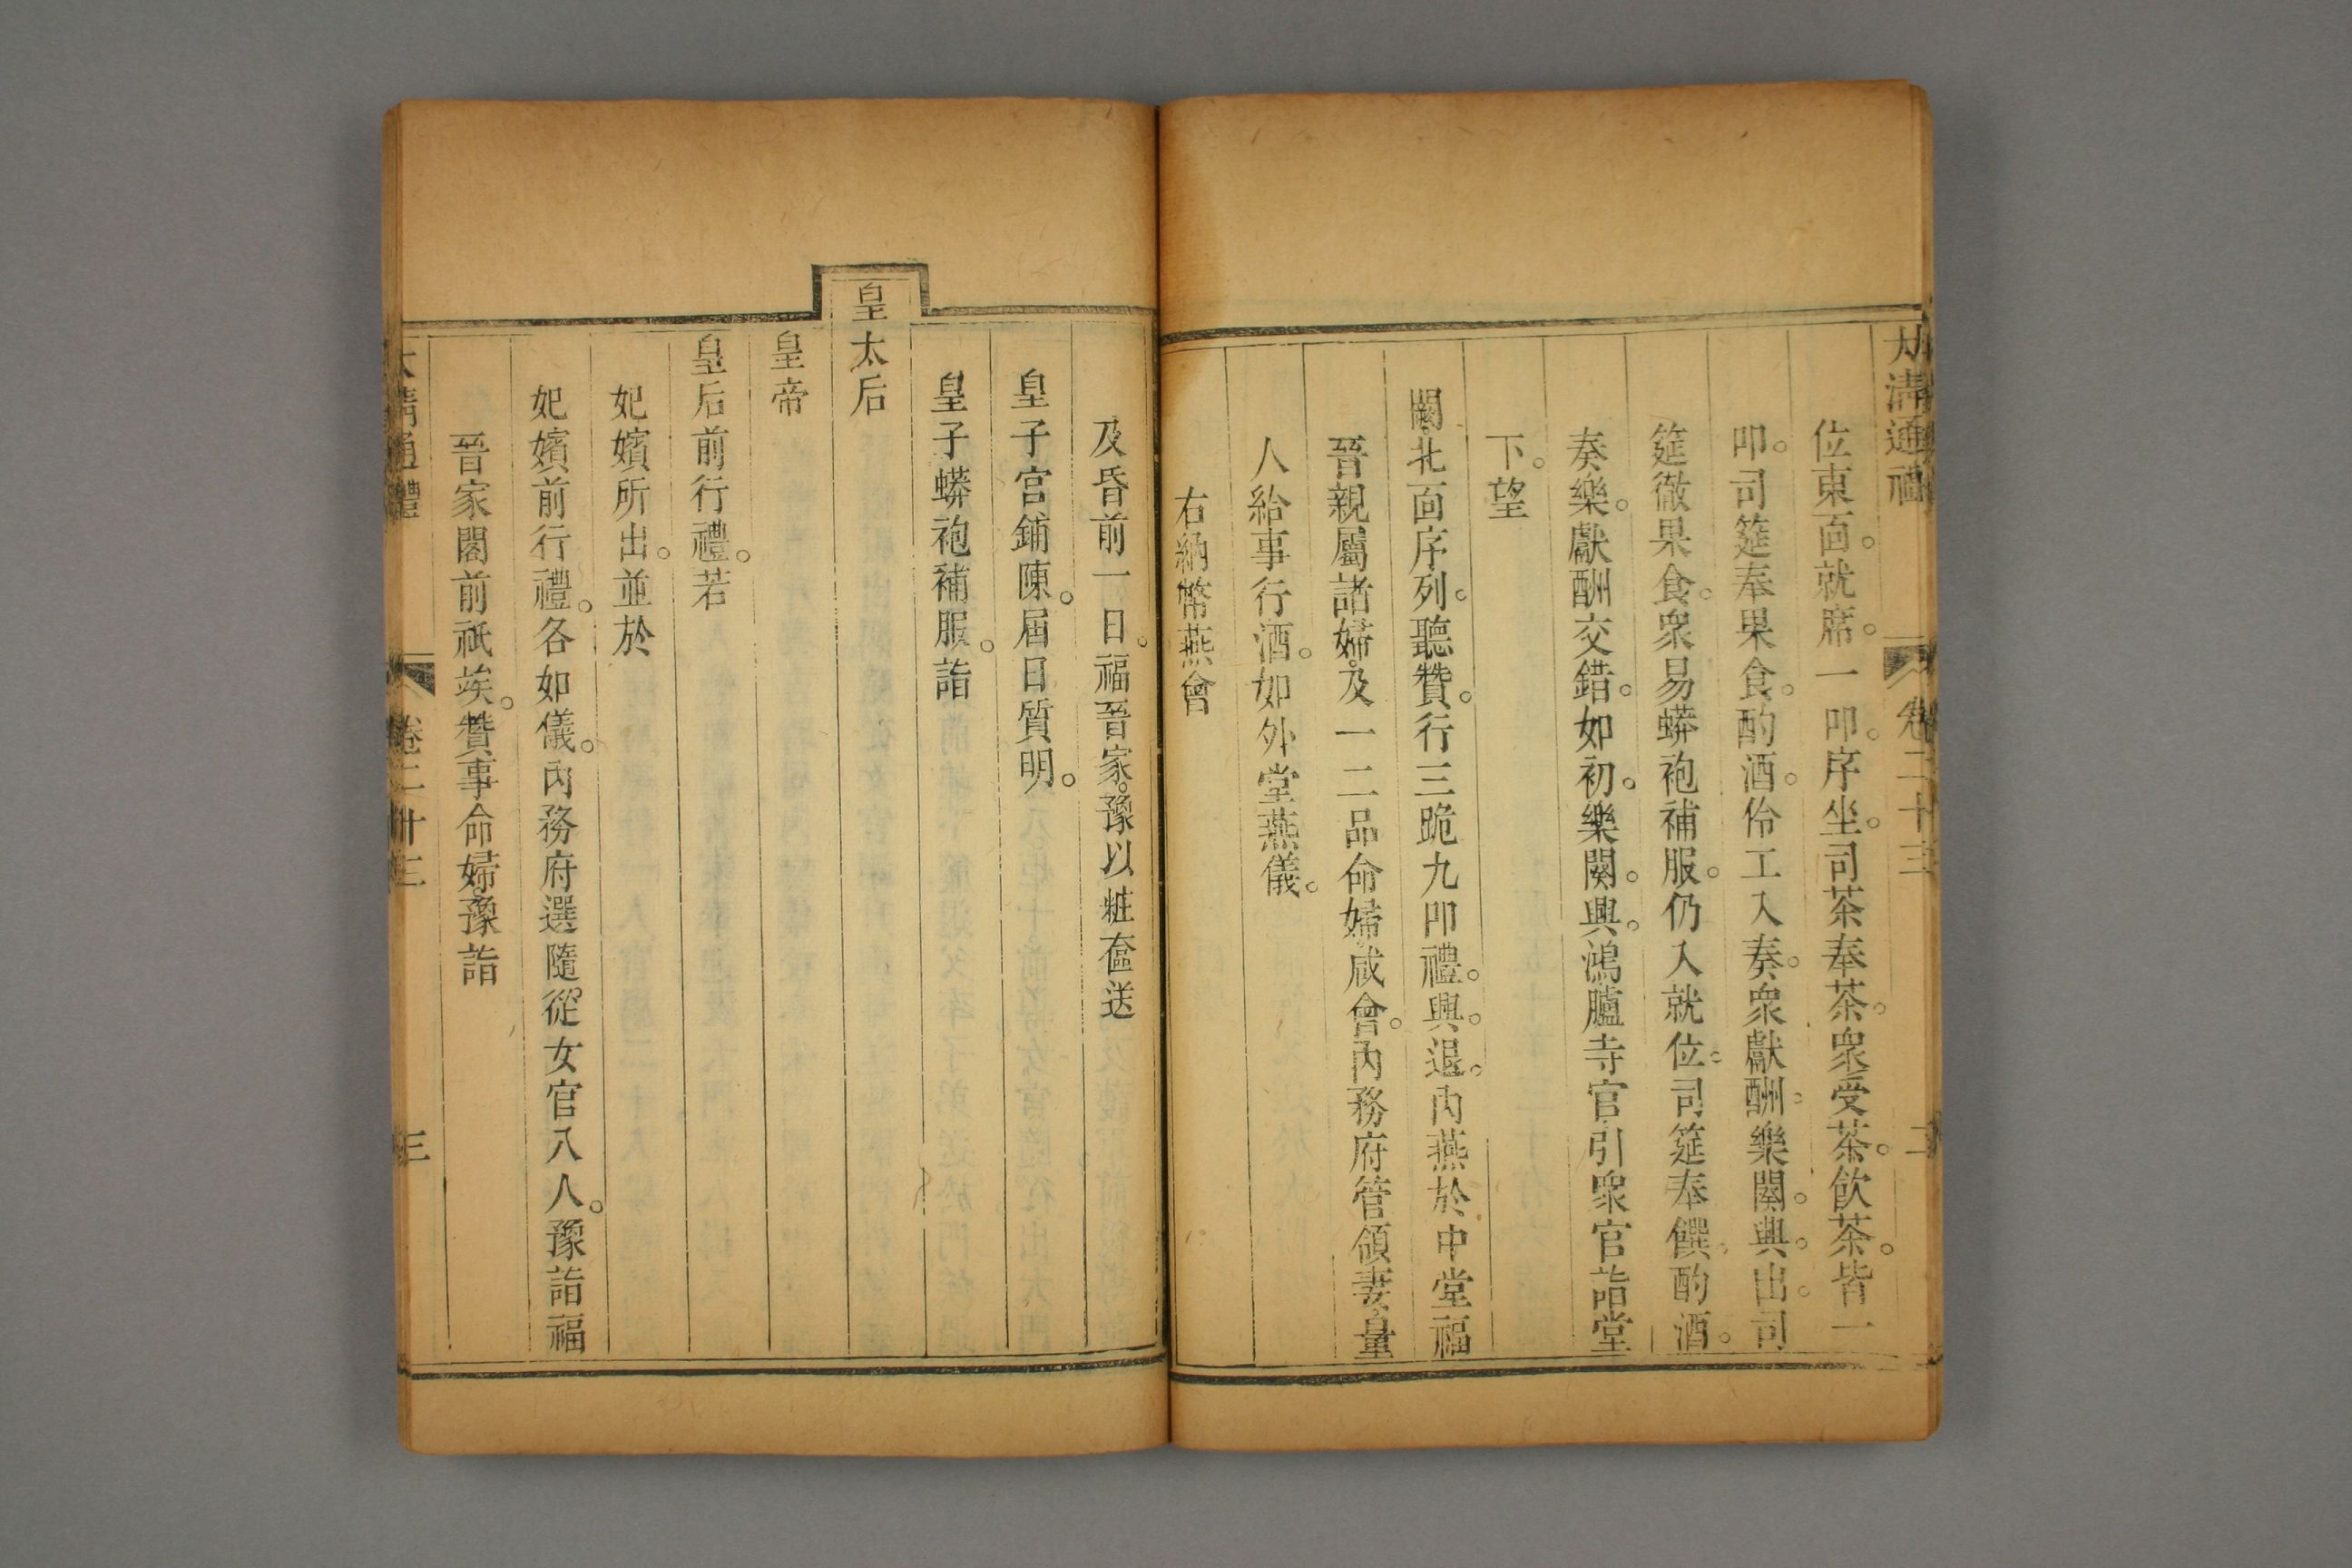 大清通禮 卷二十三 二
位東面。就席。一叩。序坐。司茶奉茶。衆受茶。飲茶。皆一
叩。司筵奉果食。酌酒。伶工入奏。衆獻酬。樂闋。興。出。司
筵徹果食。衆易蟒袍補服。仍入就位。司筵奉饌。酌酒。
奏樂。獻酬交錯。如初。樂闋。興。鴻臚寺官引衆官詣堂
下。望
闕北面序列。聽贊。行三跪九叩禮。興。退。內燕於中堂。福
晉親屬諸婦。及一二品命婦咸會。內務府管領妻。量
人給事行酒。如外堂燕儀。
右納幣燕會
及昏前一日。福晉家。豫以粧奩送
皇子宮鋪陳。屆日質明。
皇子蟒袍補服。詣
皇太后
皇帝
皇后前行禮。若
妃嬪所出。並於
妃嬪前行禮。各如儀。內務府選隨從女官八人。豫詣福
晉家閤前祇竢。贊事命婦。豫詣
大清通禮 卷二十三 三